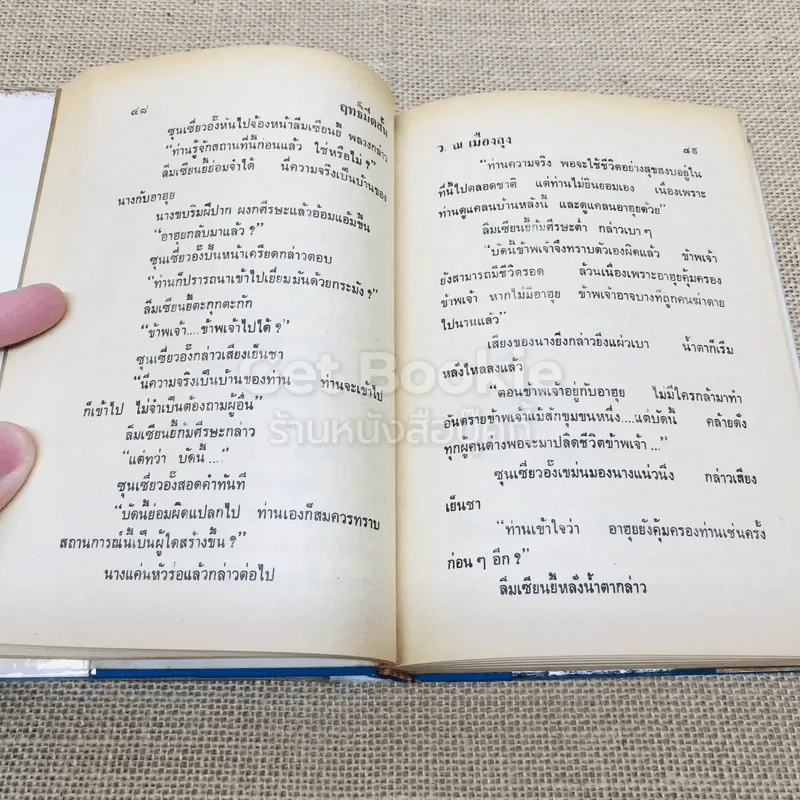 ๔๘
ฤทธิ์มีดสั้น
ซุนเซี่ยวอั้งหันไปจ้องหน้าลิ้มเซียนยี้ พลางกล่าว
"ท่านรู้จักสถานที่นี้ก่อนแล้ว ใช่หรือไม่ ?"
ลิ้มเซียนยี้ย่อมจำได้ นี่ความจริงเป็นบ้านของ
นางกับอาฮุย
นางขบริมฝีปาก ผงกศีรษะแล้วอ้อมแอ้มขึ้น
"อาฮุยกลับมาแล้ว ?"
ซุนเซี่ยวอั้งปั้นหน้าเครียดกล่าวตอบ
"ท่านก็ปรารถนาเข้าไปเยี่ยมมันด้วยกระมัง ?"
ลิ้มเซียนยี้ตะกุกตะกัก
"ข้าพเจ้า....ข้าพเจ้าไปได้ ?"
ซุนเซี่ยวอั้งกล่าวเสียงเย็นชา
"นี่ความจริงเป็นบ้านของท่าน ท่านจะเข้าไป
ก็เข้าไป ไม่จำเป็นต้องถามผู้อื่น"
ลิ้มเซียนยี้ก้มศีรษะกล่าว
"แต่ทว่า บัดนี้ ..."
ซุนเซี่ยวอั้งสอดคำทันที
"บัดนี้ย่อมผิดแปลกไป ท่านเองก็สมควรทราบ
สถานการณ์นี้เป็นผู้ใดสร้างขึ้น ?"
นางแค่นหัวร่อแล้วกล่าวต่อไป
ว. ณ เมืองลุง
๔๙
"ท่านความจริง พอจะใช้ชีวิตอย่างสุขสงบอยู่ใน
ที่นี้ไปตลอดชาติ แต่ท่านไม่ยินยอมเอง เนื่องเพราะ
ท่านดูแคลนบ้านหลังนี้ และดูแคลนอาฮุยด้วย"
ลิ้มเซียนยี้ก้มศีรษะต่ำ กล่าวเบา ๆ
"บัดนี้ข้าพเจ้าจึงทราบตัวเองผิดแล้ว ข้าพเจ้า
ยังสามารถมีชีวิตรอด ล้วนเนื่องเพราะอาฮุยคุ้มครอง
ข้าพเจ้า หากไม่มีอาฮุย ข้าพเจ้าอาจบางทีถูกคนฆ่าตาย
ไปนานแล้ว"
เสียงของนางยิ่งกล่าวยิ่งแผ่วเบา น้ำตาก็เริ่ม
หลั่งไหลลงแล้ว
"ตอนข้าพเจ้าอยู่กับอาฮุย ไม่มีใครกล้ามาทำ
อันตรายข้าพเจ้าแม้สักขุมขนหนึ่ง....แต่บัดนี้ คล้ายดัง
ทุกผู้คนต่างพอจะมาปลิดชีวิตข้าพเจ้า ..."
ซุนเซี่ยวอั้งเขม่นมองนางแน่วนิ่ง กล่าวเสียง
เย็นชา
"ท่านเข้าใจว่า อาฮุยยังคุ้มครองท่านเช่นครั้ง
ก่อน ๆ อีก ?"
ลิ้มเซียนยี้หลั่งน้ำตากล่าว
Get Bookie
ร้านหนังสือบุ๊คกี้